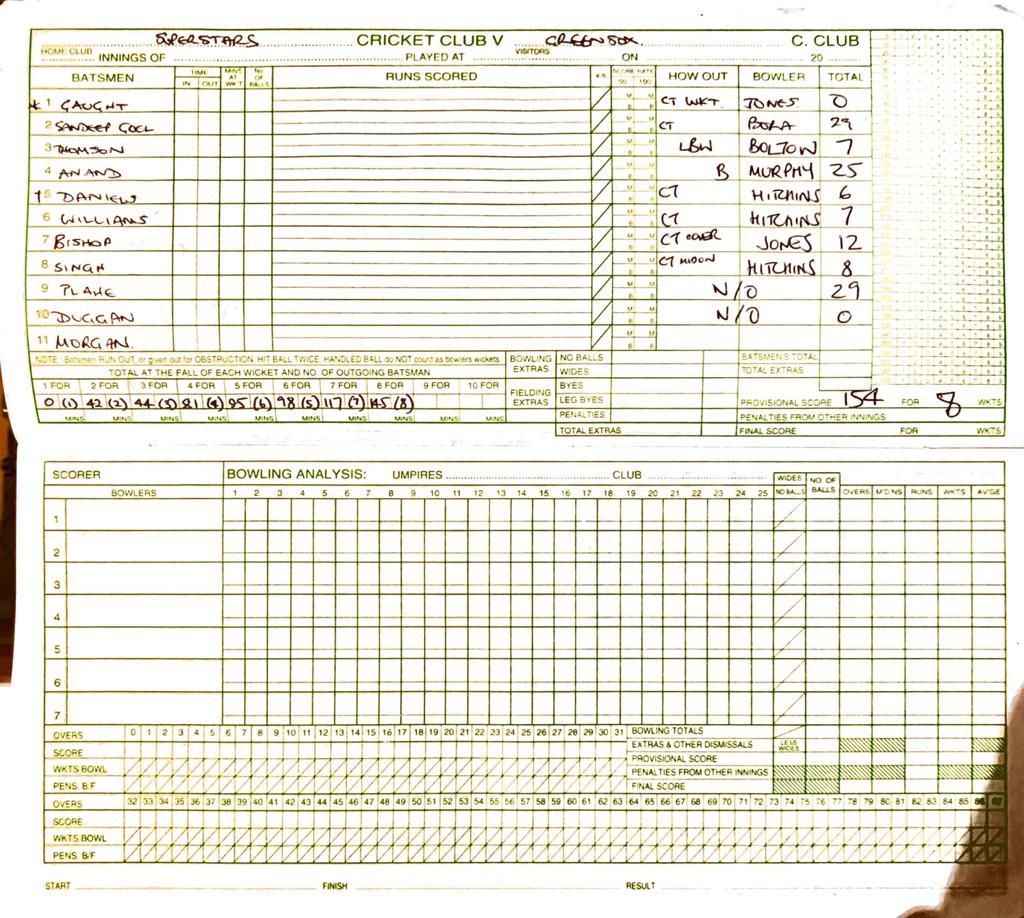 SUPERSTARS CRICKET CLUB V GREENSOX. C. CLUB
HOME CLUB VISITORS
INNINGS OF PLAYED AT ON 20
BATSMEN TIME IN OUT MINS AT WKT NO OF BALLS RUNS SCORED 4/6 SCORE RATE 50 100 HOW OUT BOWLER TOTAL
* 1 GAUGHT CT WKT. JONES 0
2 SANDEEP GOEL CT BORA 29
3 THOMSON LBW BOLTON 7
4 ANAND B MURPHY 25
†5 DANIELS CT HITCHINS 6
6 WILLIAMS CT HITCHINS 7
7 BISHOP CT COVER JONES 12
8 SINGH CT MIDON HITCHINS 8
9 PLANE N/O 29
10 DUGGAN N/O 0
11 MORGAN.
NOTE: Batsmen RUN OUT, or given out for OBSTRUCTION, HIT BALL TWICE, HANDLED BALL do NOT count as bowlers wickets.
TOTAL AT THE FALL OF EACH WICKET AND NO. OF OUTGOING BATSMAN
1 FOR 2 FOR 3 FOR 4 FOR 5 FOR 6 FOR 7 FOR 8 FOR 9 FOR 10 FOR
0 (1) 42 (2) 44 (3) 81 (4) 95 (6) 98 (5) 117 (7) 145 (8)
MINS MINS MINS MINS MINS MINS MINS MINS MINS MINS
BOWLING EXTRAS NO BALLS BATSMEN'S TOTAL
WIDES TOTAL EXTRAS
FIELDING EXTRAS BYES
LEG BYES PROVISIONAL SCORE 154 FOR 8 WKTS
PENALTIES PENALTIES FROM OTHER INNINGS
TOTAL EXTRAS FINAL SCORE FOR WKTS
SCORER BOWLING ANALYSIS: UMPIRES CLUB
BOWLERS 1 2 3 4 5 6 7 8 9 10 11 12 13 14 15 16 17 18 19 20 21 22 23 24 25 WIDES NO BALLS NO. OF BALLS OVERS M'D'NS RUNS WKTS AV'GE
1
2
3
4
5
6
7
OVERS 0 1 2 3 4 5 6 7 8 9 10 11 12 13 14 15 16 17 18 19 20 21 22 23 24 25 26 27 28 29 30 31 BOWLING TOTALS
SCORE EXTRAS & OTHER DISMISSALS LESS WIDES
WKTS BOWL PROVISIONAL SCORE
PENALTIES FROM OTHER INNINGS
PENS. B/F FINAL SCORE
OVERS 32 33 34 35 36 37 38 39 40 41 42 43 44 45 46 47 48 49 50 51 52 53 54 55 56 57 58 59 60 61 62 63 64 65 66 67 68 69 70 71 72 73 74 75 76 77 78 79 80 81 82 83 84 85 86 87
SCORE
WKTS BOWL
PENS. B/F
START FINISH RESULT